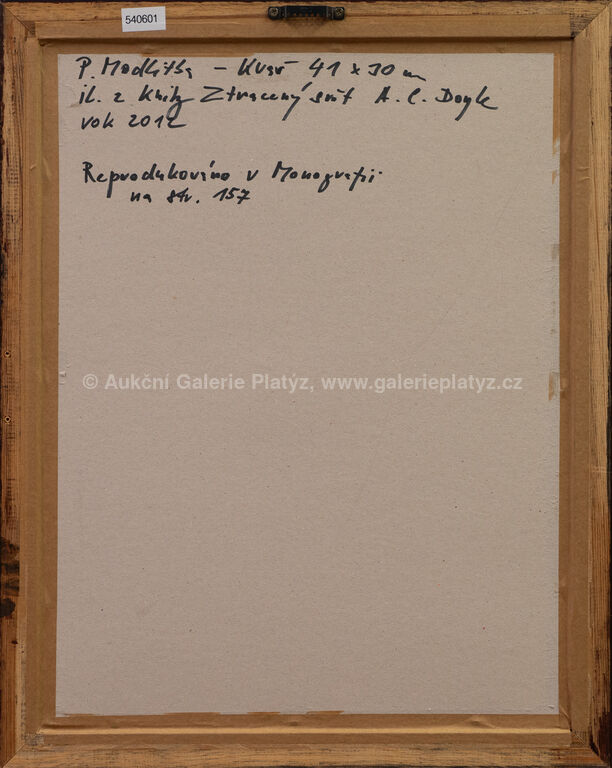 540601
P. Modlitba - Kvaš 41 x 30 cm
il. z knihy Ztracený svět A. C. Doyle
rok 2012
Reprodukováno v Monografii
na str. 157
© Aukční Galerie Platýz, www.galerieplatyz.cz